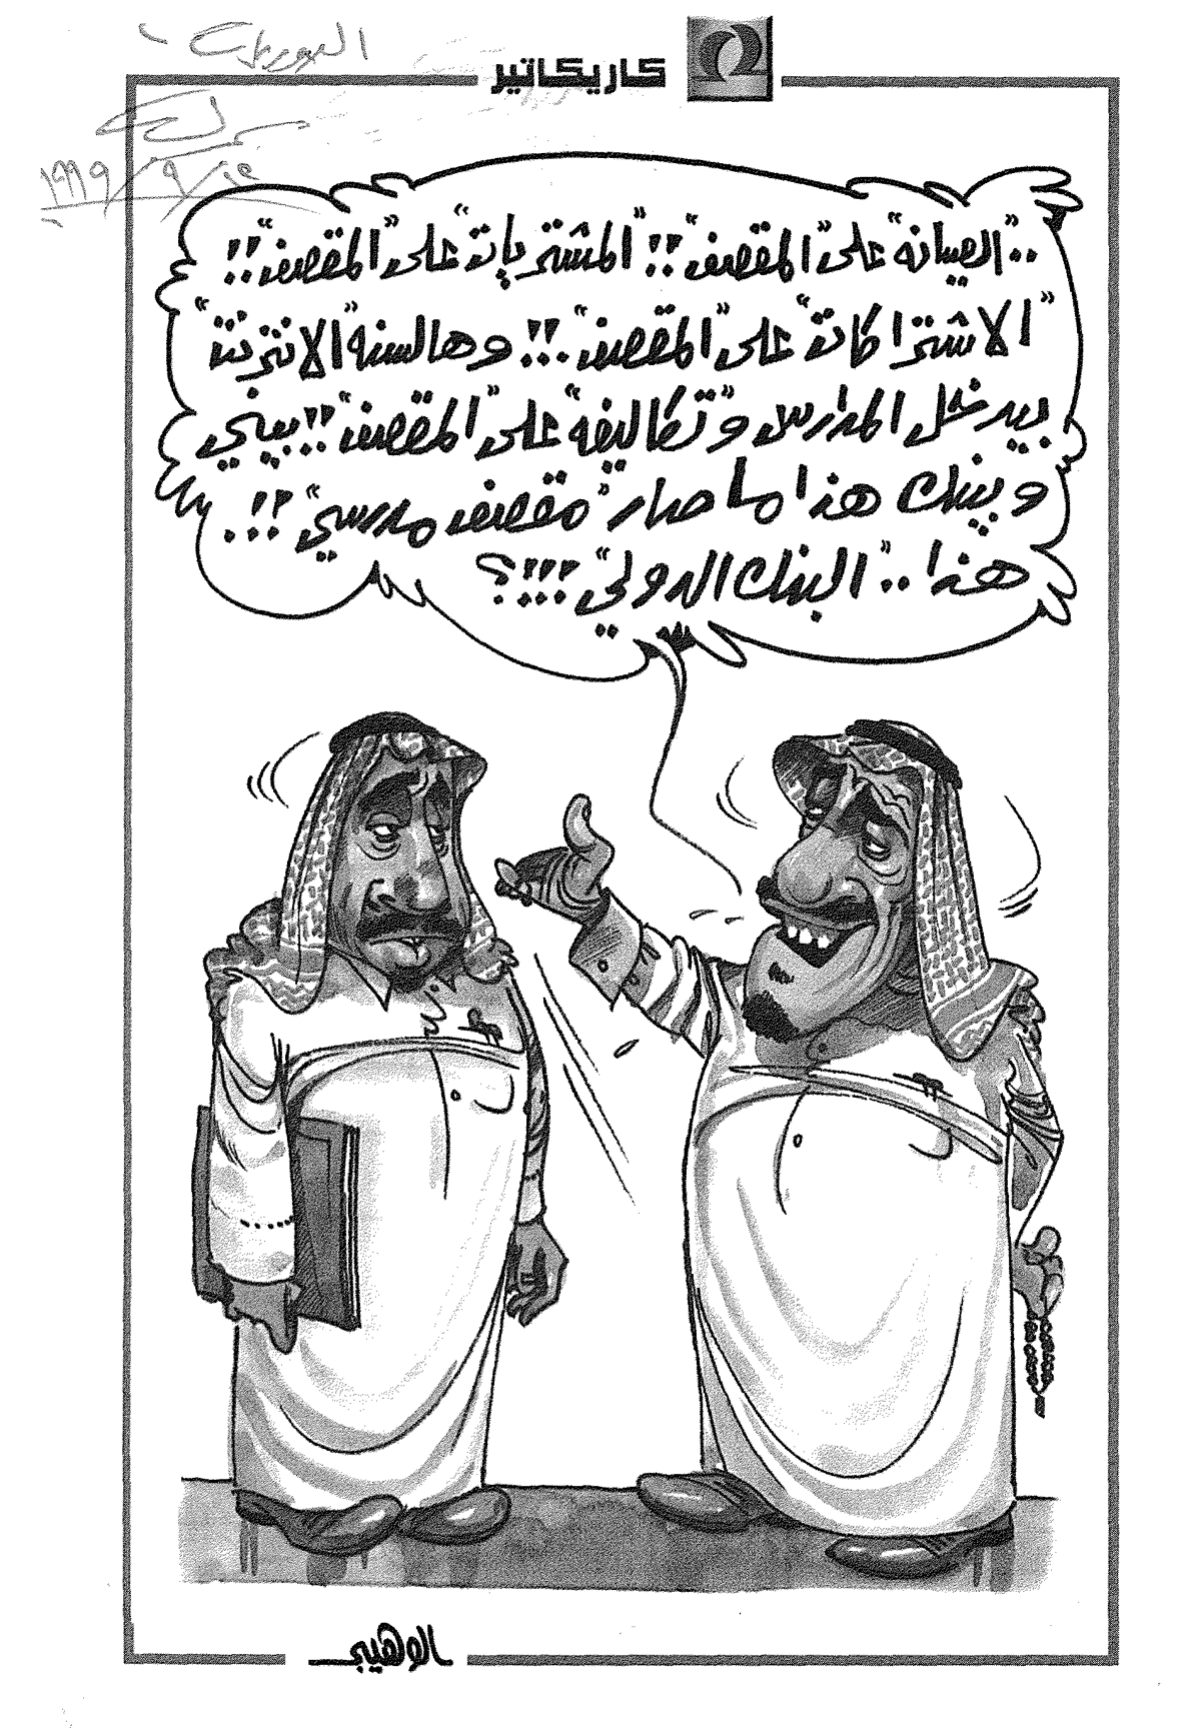 كاريكاتير
١٩٩٩/٩/١٥
.. "الصيانه" على "المقصف"!! "المشتريات" على "المقصف"!!
"الاشتراكات" على "المقصف"..!! وهالسنه "الانترنت"
بيدخل المدارس و"تكاليفه" على "المقصف"!! بيني
وبينك هذا ما صار "مقصف مدرسي"..!!
هذا.. "البنك الدولي"...!!؟
الوهيبي